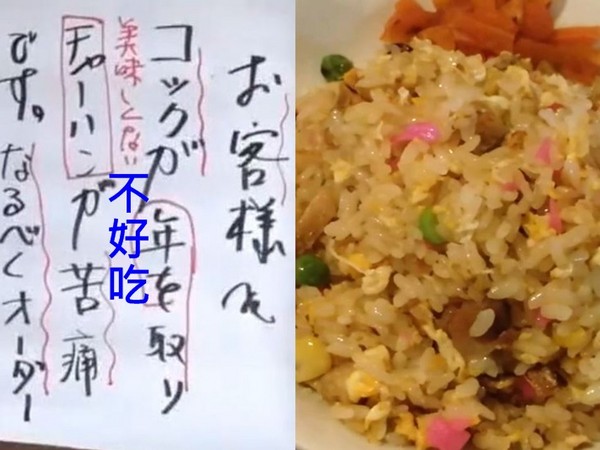 お客様へ
コックが年を取り
美味しくない
チャーハンが苦痛
です。なるべくオーダー
不好吃